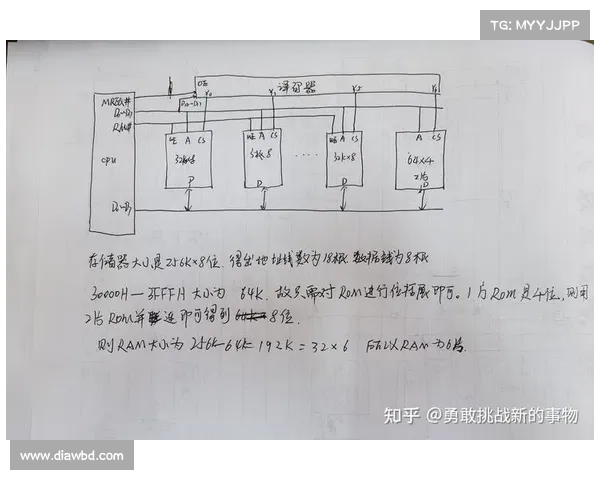 TG: MYYJJPP
OE
译码器
Y0
Y1
Y5
MREQ#
R/W#
cpu
D0-D7
WE A CS
32k×8
D
WE A CS
32k×8
D
······
WE A CS
32k×8
D
A CS
64×4
2片
D
存储器大小是256K×8位. 得出地址线数为18根 数据线为8根
30000H—3FFFH 大小为 64K. 故只需对ROM进行位拓展即可。1片ROM是4位,则用
2片ROM并连即可得到 8位.
则RAM大小为 256K-64K 192K = 32×6 所以RAM为6片.
知乎 @勇敢挑战新的事物
www.diawbd.com